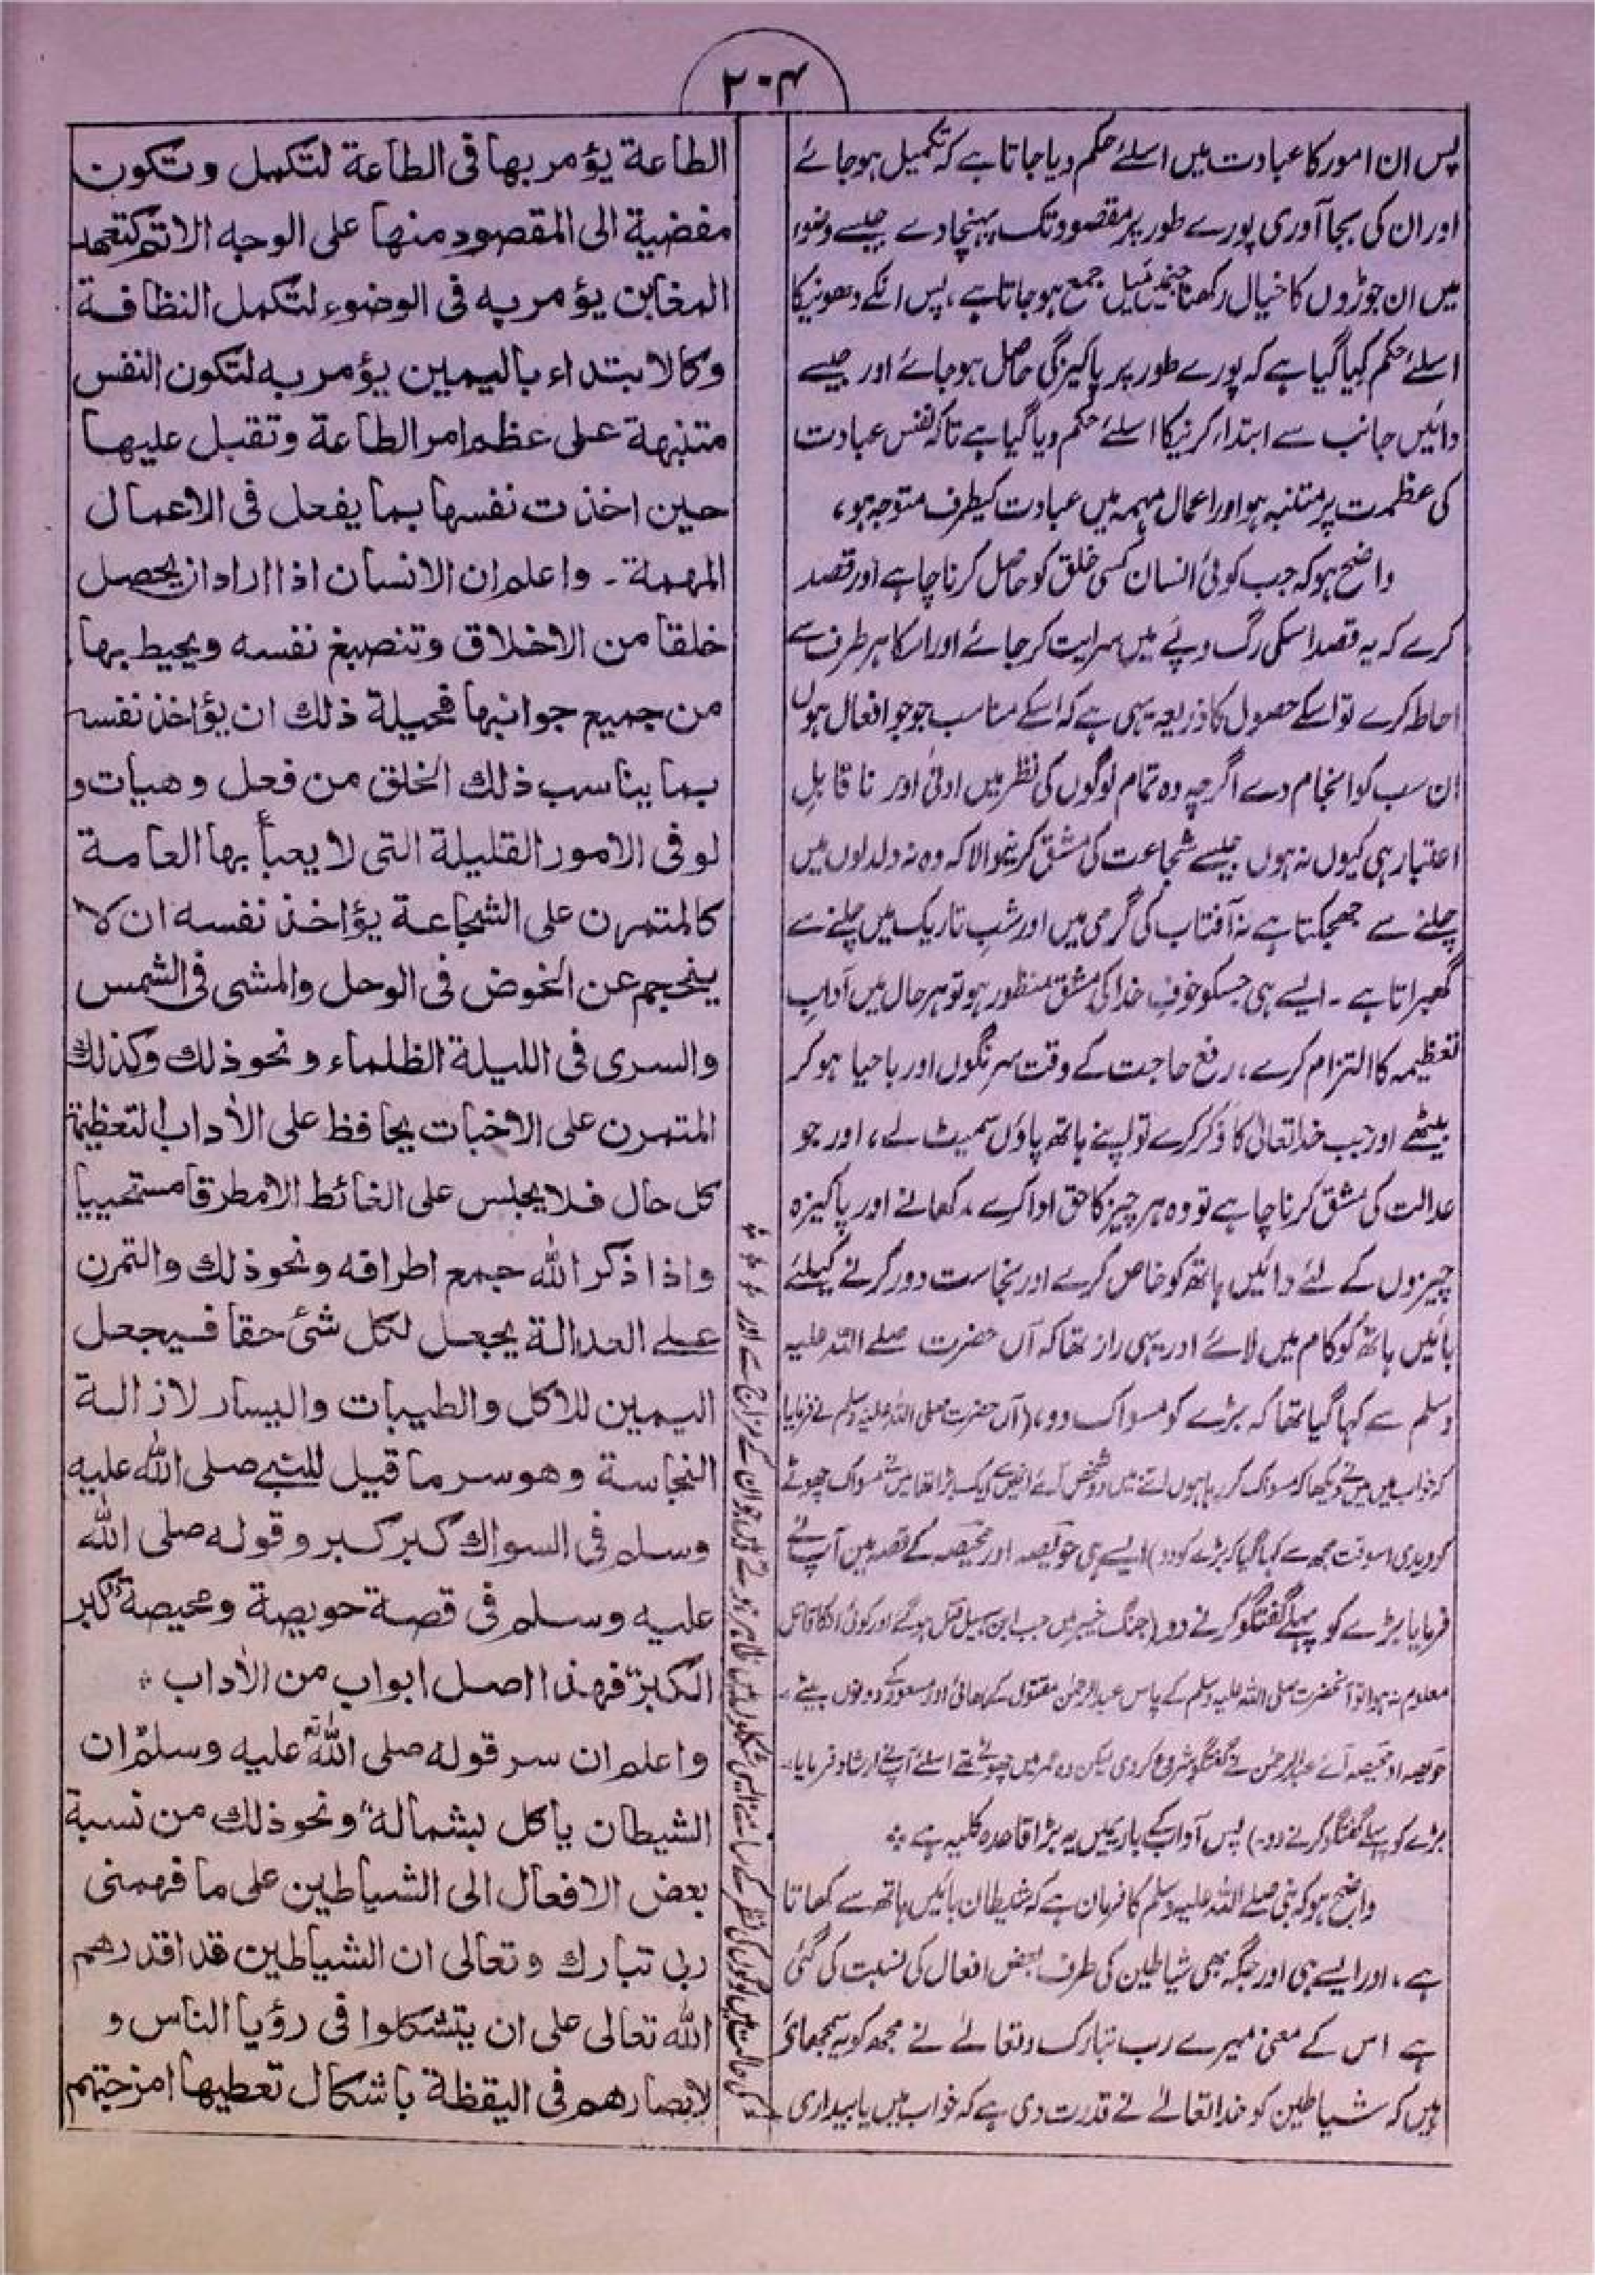 ۲۰۴
پس ان امور کا عبادت میں اسلئے حکم دیا جاتا ہے کہ تکمیل ہو جائے
اور ان کی بجا آوری پورے طور پر مقصود تک پہنچادے جیسے وضوء
میں ان جوڑوں کا خیال رکھنا جنمیں میل جمع ہو جاتا ہے، پس انکے دھونیکا
اسلئے حکم کیا گیا ہے کہ پورے طور پر پاکیزگی حاصل ہو جائے اور جیسے
دائیں جانب سے ابتداء کرنیکا اسلئے حکم دیا گیا ہے تاکہ نفس عبادت
کی عظمت پر متنبہ ہو اور اعمال مہمہ میں عبادت کیطرف متوجہ ہو،
واضح ہو کہ جب کوئی انسان کسی خلق کو حاصل کرنا چاہے اور قصد
کرے کہ یہ قصد اسکی رگ وپے میں سرایت کر جائے اور اسکا ہر طرف سے
احاطہ کرے تو اسکے حصول کا ذریعہ یہی ہے کہ اسکے مناسب جو جو افعال ہوں
ان سب کو انجام دے اگرچہ وہ تمام لوگوں کی نظر میں ادنیٰ اور نا قابل
اعتبار ہی کیوں نہ ہوں جیسے شجاعت کی مشق کرنیوالا کہ وہ نہ دلدلوں میں
چلنے سے جھجکتا ہے نہ آفتاب کی گرمی میں اور شب تاریک میں چلنے سے
گھبراتا ہے - ایسے ہی جسکو خوفِ خدا کی مشق منظور ہو تو ہر حال میں آداب
تعظیمہ کا التزام کرے، رفع حاجت کے وقت سرنگوں اور باحیا ہو کر
بیٹھے اور جب خدا تعالیٰ کا ذکر کرے تو اپنے ہاتھ پاؤں سمیٹ لے، اور جو
عدالت کی مشق کرنا چاہے تو وہ ہر چیز کا حق ادا کرے، کھانے اور پاکیزہ
چیزوں کے لئے دائیں ہاتھ کو خاص کرے اور نجاست دور کرنے کیلئے
بائیں ہاتھ کو کام میں لائے اور یہی راز تھا کہ آں حضرت صلے اللہ علیہ
وسلم سے کہا گیا تھا کہ بڑے کو مسواک دو، (آں حضرت صلی اللہ علیہ وسلم نے فرمایا
کہ خواب میں میں نے دیکھا کہ مسواک کر رہا ہوں اتنے میں دو شخص آئے انمیں ایک بڑا تھا میں نے مسواک چھوٹے
کو دیدی اسوقت مجھ سے کہا گیا کہ بڑے کو دو) ایسے ہی حویصہ اور محیصہ کے قصہ میں آپ نے
فرمایا بڑے کو پہلے گفتگو کرنے دو (جنگ خیبر میں جب ابن سہیل قتل ہوگئے اور کوئی انکا قاتل
معلوم نہ ہوا تو آنحضرت صلی اللہ علیہ وسلم کے پاس عبدالرحمن مقتول کے بھائی اور مسعود کے دونوں بیٹے
حویصہ اور محیصہ آئے عبدالرحمن نے گفتگو شروع کردی لیکن وہ عمر میں چھوٹے تھے اسلئے آپنے ارشاد فرمایا
بڑے کو پہلے گفتگو کرنے دو،) پس آداب کے بار میں یہ بڑا قاعدہ کلیہ ہے ؞
واضح ہو کہ نبی صلے اللہ علیہ وسلم کا فرمان ہے کہ شیطان بائیں ہاتھ سے کھاتا
ہے، اور ایسے ہی اور جگہ بھی شیاطین کی طرف بعض افعال کی نسبت کی گئی
ہے اس کے معنی میرے رب تبارک وتعالےٰ نے مجھ کو یہ سمجھائے
ہیں کہ شیاطین کو خدا تعالےٰ نے قدرت دی ہے کہ خواب میں یا بیداری
کی حالت میں لوگوں کی نظر کے سامنے ایسی شکلوں میں ظاہر ہوتے ہیں جو ان کے مزاج سے اور
الطاعة يؤمر بها فى الطاعة لتكمل وتكون
مفضية الى المقصود منها على الوجه الاتم كتعهد
المغابن يؤمر به فى الوضوء لتكمل النظافة
وكالابتداء باليمين يؤمر به لتكون النفس
متنبهة على عظم امر الطاعة وتقبل عليها
حين اخذت نفسها بما يفعل فى الاعمال
المهمة - واعلم ان الانسان اذا اراد ان يحصل
خلقا من الاخلاق وتنصبغ نفسه ويحيط بها
من جميع جوانبها فحيلة ذلك ان يؤاخذ نفسه
بما يناسب ذلك الخلق من فعل وهيات و
لو فى الامور القليلة التى لا يعبأ بها العامة
كالمتمرن على الشجاعة يؤاخذ نفسه ان لا
ينحجم عن الخوض فى الوحل والمشى فى الشمس
والسرى فى الليلة الظلماء ونحو ذلك وكذلك
المتمرن على الاخبات يحافظ على الأداب التعظيمة
كل حال فلا يجلس على الغائط الا مطرقا مستحييا
واذا ذكر الله جمع اطرافه ونحو ذلك والتمرن
على العدالة يجعل لكل شئ حقا فيجعل
اليمين للاكل والطيبات واليسار لازالة
النجاسة وهو سر ما قيل للنبى صلى الله عليه
وسلم فى السواك كبر كبر وقوله صلى الله
عليه وسلم فى قصة حويصة ومحيصة "كبر
الكبر" فهذا اصل ابواب من الأداب ؞
واعلم ان سر قوله صلى الله عليه وسلم "ان
الشيطان ياكل بشماله" ونحو ذلك من نسبة
بعض الافعال الى الشياطين على ما فهمنى
ربى تبارك وتعالى ان الشياطين قد اقدرهم
الله تعالى على ان يتشكلوا فى رؤيا الناس و
لابصارهم فى اليقظة باشكال تعطيها امزجتهم